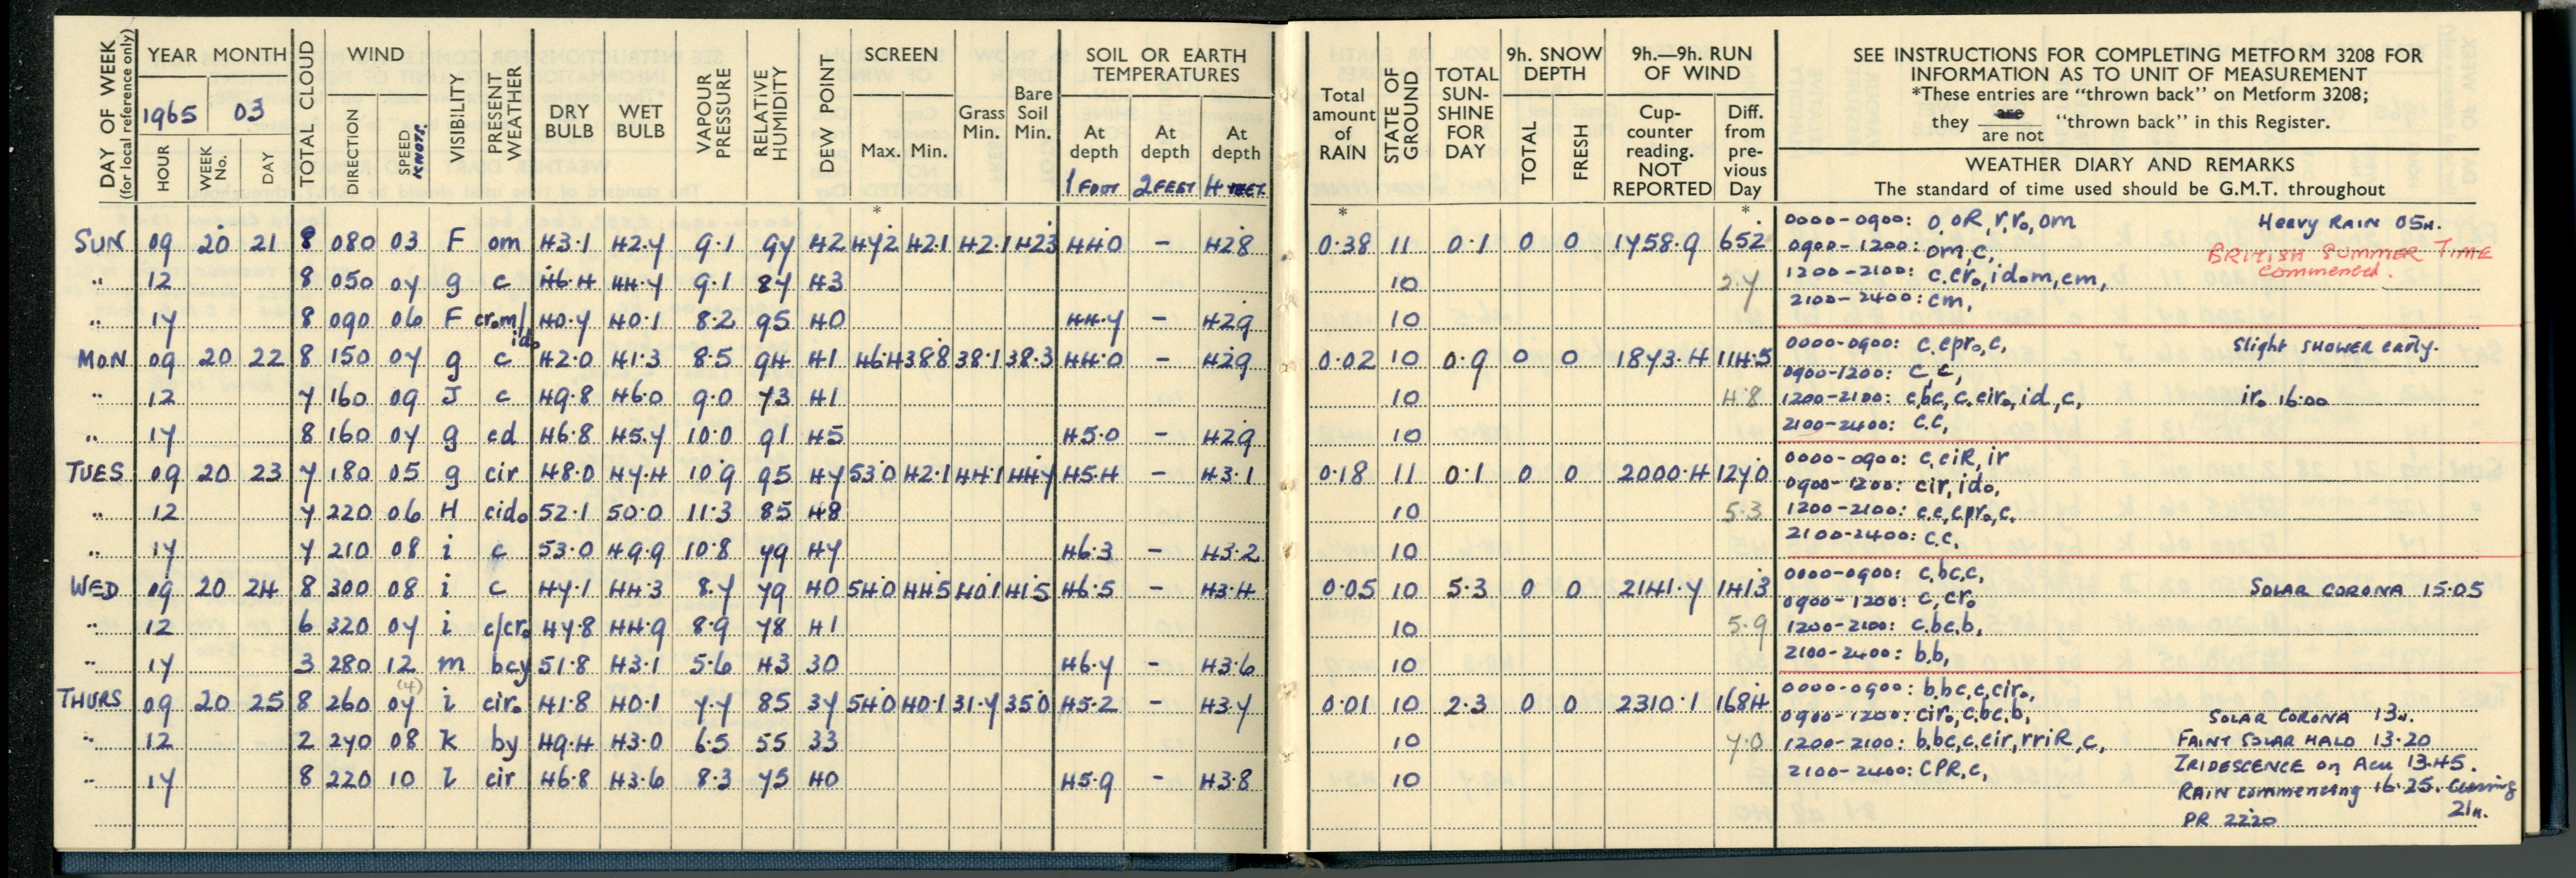 DAY OF WEEK
(for local reference only)
YEAR MONTH
1965 03
HOUR
WEEK No.
DAY
TOTAL CLOUD
WIND
DIRECTION
SPEED
KNOTS
VISIBILITY
PRESENT WEATHER
DRY BULB
WET BULB
VAPOUR PRESSURE
RELATIVE HUMIDITY
DEW POINT
SCREEN
Max. Min.
Grass Min.
Bare Soil Min.
SOIL OR EARTH
TEMPERATURES
At depth 1 FOOT
At depth 2 FEET
At depth 4 FEET
*
SUN 09 20 21 8 080 03 F om 43.1 42.7 9.1 97 42 47.2 42.1 42.1 42.3 44.0 – 42.8
" 12 8 050 07 g c 46.4 44.7 9.1 87 43
" 17 8 090 06 F crom/ido 40.7 40.1 8.2 95 40 44.7 – 42.9
MON 09 20 22 8 150 07 g c 42.0 41.3 8.5 94 41 46.4 38.8 38.1 38.3 44.0 – 42.9
" 12 7 160 09 J c 49.8 46.0 9.0 73 41
" 17 8 160 07 g cd 46.8 45.7 10.0 91 45 45.0 – 42.9
TUES 09 20 23 7 180 05 g cir 48.0 47.4 10.9 95 47 53.0 42.1 44.1 44.7 45.4 – 43.1
" 12 7 220 06 H cido 52.1 50.0 11.3 85 48
" 17 7 210 08 i c 53.0 49.9 10.8 79 47 46.3 – 43.2
WED 09 20 24 8 300 08 i c 47.1 44.3 8.7 79 40 54.0 44.5 40.1 41.5 46.5 – 43.4
" 12 6 320 07 i c/cro 47.8 44.9 8.9 78 41
" 17 3 280 12 m bcy 51.8 43.1 5.6 43 30 46.7 – 43.6
(4)
THURS 09 20 25 8 260 07 i ciro 41.8 40.1 7.7 85 37 54.0 40.1 31.7 35.0 45.2 – 43.7
" 12 2 270 08 k by 49.4 43.0 6.5 55 33
" 17 8 220 10 l cir 46.8 43.6 8.3 75 40 45.9 – 43.8
Total amount of RAIN
STATE OF GROUND
TOTAL SUN-SHINE FOR DAY
9h. SNOW DEPTH
TOTAL
FRESH
9h.—9h. RUN OF WIND
Cup-counter reading. NOT REPORTED
Diff. from pre-vious Day
SEE INSTRUCTIONS FOR COMPLETING METFORM 3208 FOR
INFORMATION AS TO UNIT OF MEASUREMENT
*These entries are "thrown back" on Metform 3208;
they are / are not "thrown back" in this Register.
WEATHER DIARY AND REMARKS
The standard of time used should be G.M.T. throughout
* *
0.38 11 0.1 0 0 1758.9 65.2
10 2.7
10
0.02 10 0.9 0 0 1873.4 114.5
10 4.8
10
0.18 11 0.1 0 0 2000.4 127.0
10 5.3
10
0.05 10 5.3 0 0 2141.7 141.3
10 5.9
10
0.01 10 2.3 0 0 2310.1 168.4
10 7.0
10
0000-0900: o,oR,r,ro,om Heavy RAIN 05h.
0900-1200: om,c, BRITISH SUMMER TIME
1200-2100: c.cro,idom,cm, Commenced.
2100-2400: cm,
0000-0900: c.cpro,c, Slight SHOWER early.
0900-1200: c,c,
1200-2100: c,bc,c.ciro,id,c, iro 16.00
2100-2400: c.c,
0000-0900: c,ciR,ir
0900-1200: cir,ido,
1200-2100: c.c,cpro,c,
2100-2400: c.c,
0000-0900: c,bc,c, SOLAR CORONA 15.05
0900-1200: c,cro
1200-2100: c.bc.b,
2100-2400: b.b,
0000-0900: b.bc,c,ciro,
0900-1200: ciro,c,bc.b, SOLAR CORONA 13h.
1200-2100: b.bc,c.cir,rriR,c, FAINT SOLAR HALO 13.20
2100-2400: CPR,c, IRIDESCENCE on Acu 13.45.
RAIN commencing 16.25. Ceasing 21h.
PR 2220